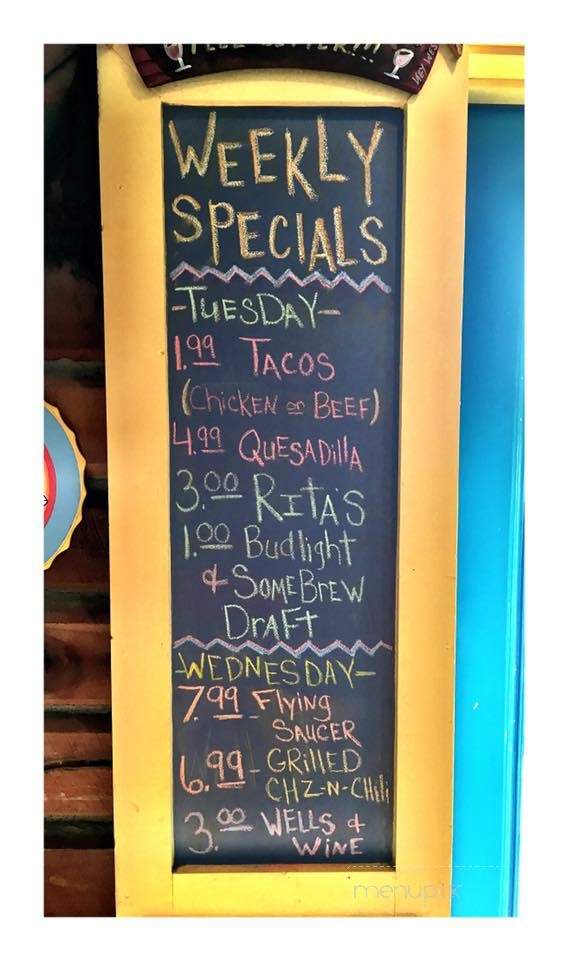 WEEKLY
SPECIALS
-TUESDAY-
1.99 TACOS
(Chicken or BEEF)
4.99 QUESADillA
3.00 RITA'S
1.00 Budlight
& SOMEBREW
DrAFt
-WEDNESDAY-
7.99 Flying
SAUCER
6.99 - GRillED
CHZ-N-CHili
3.00 WELLS &
WiNE
menupix